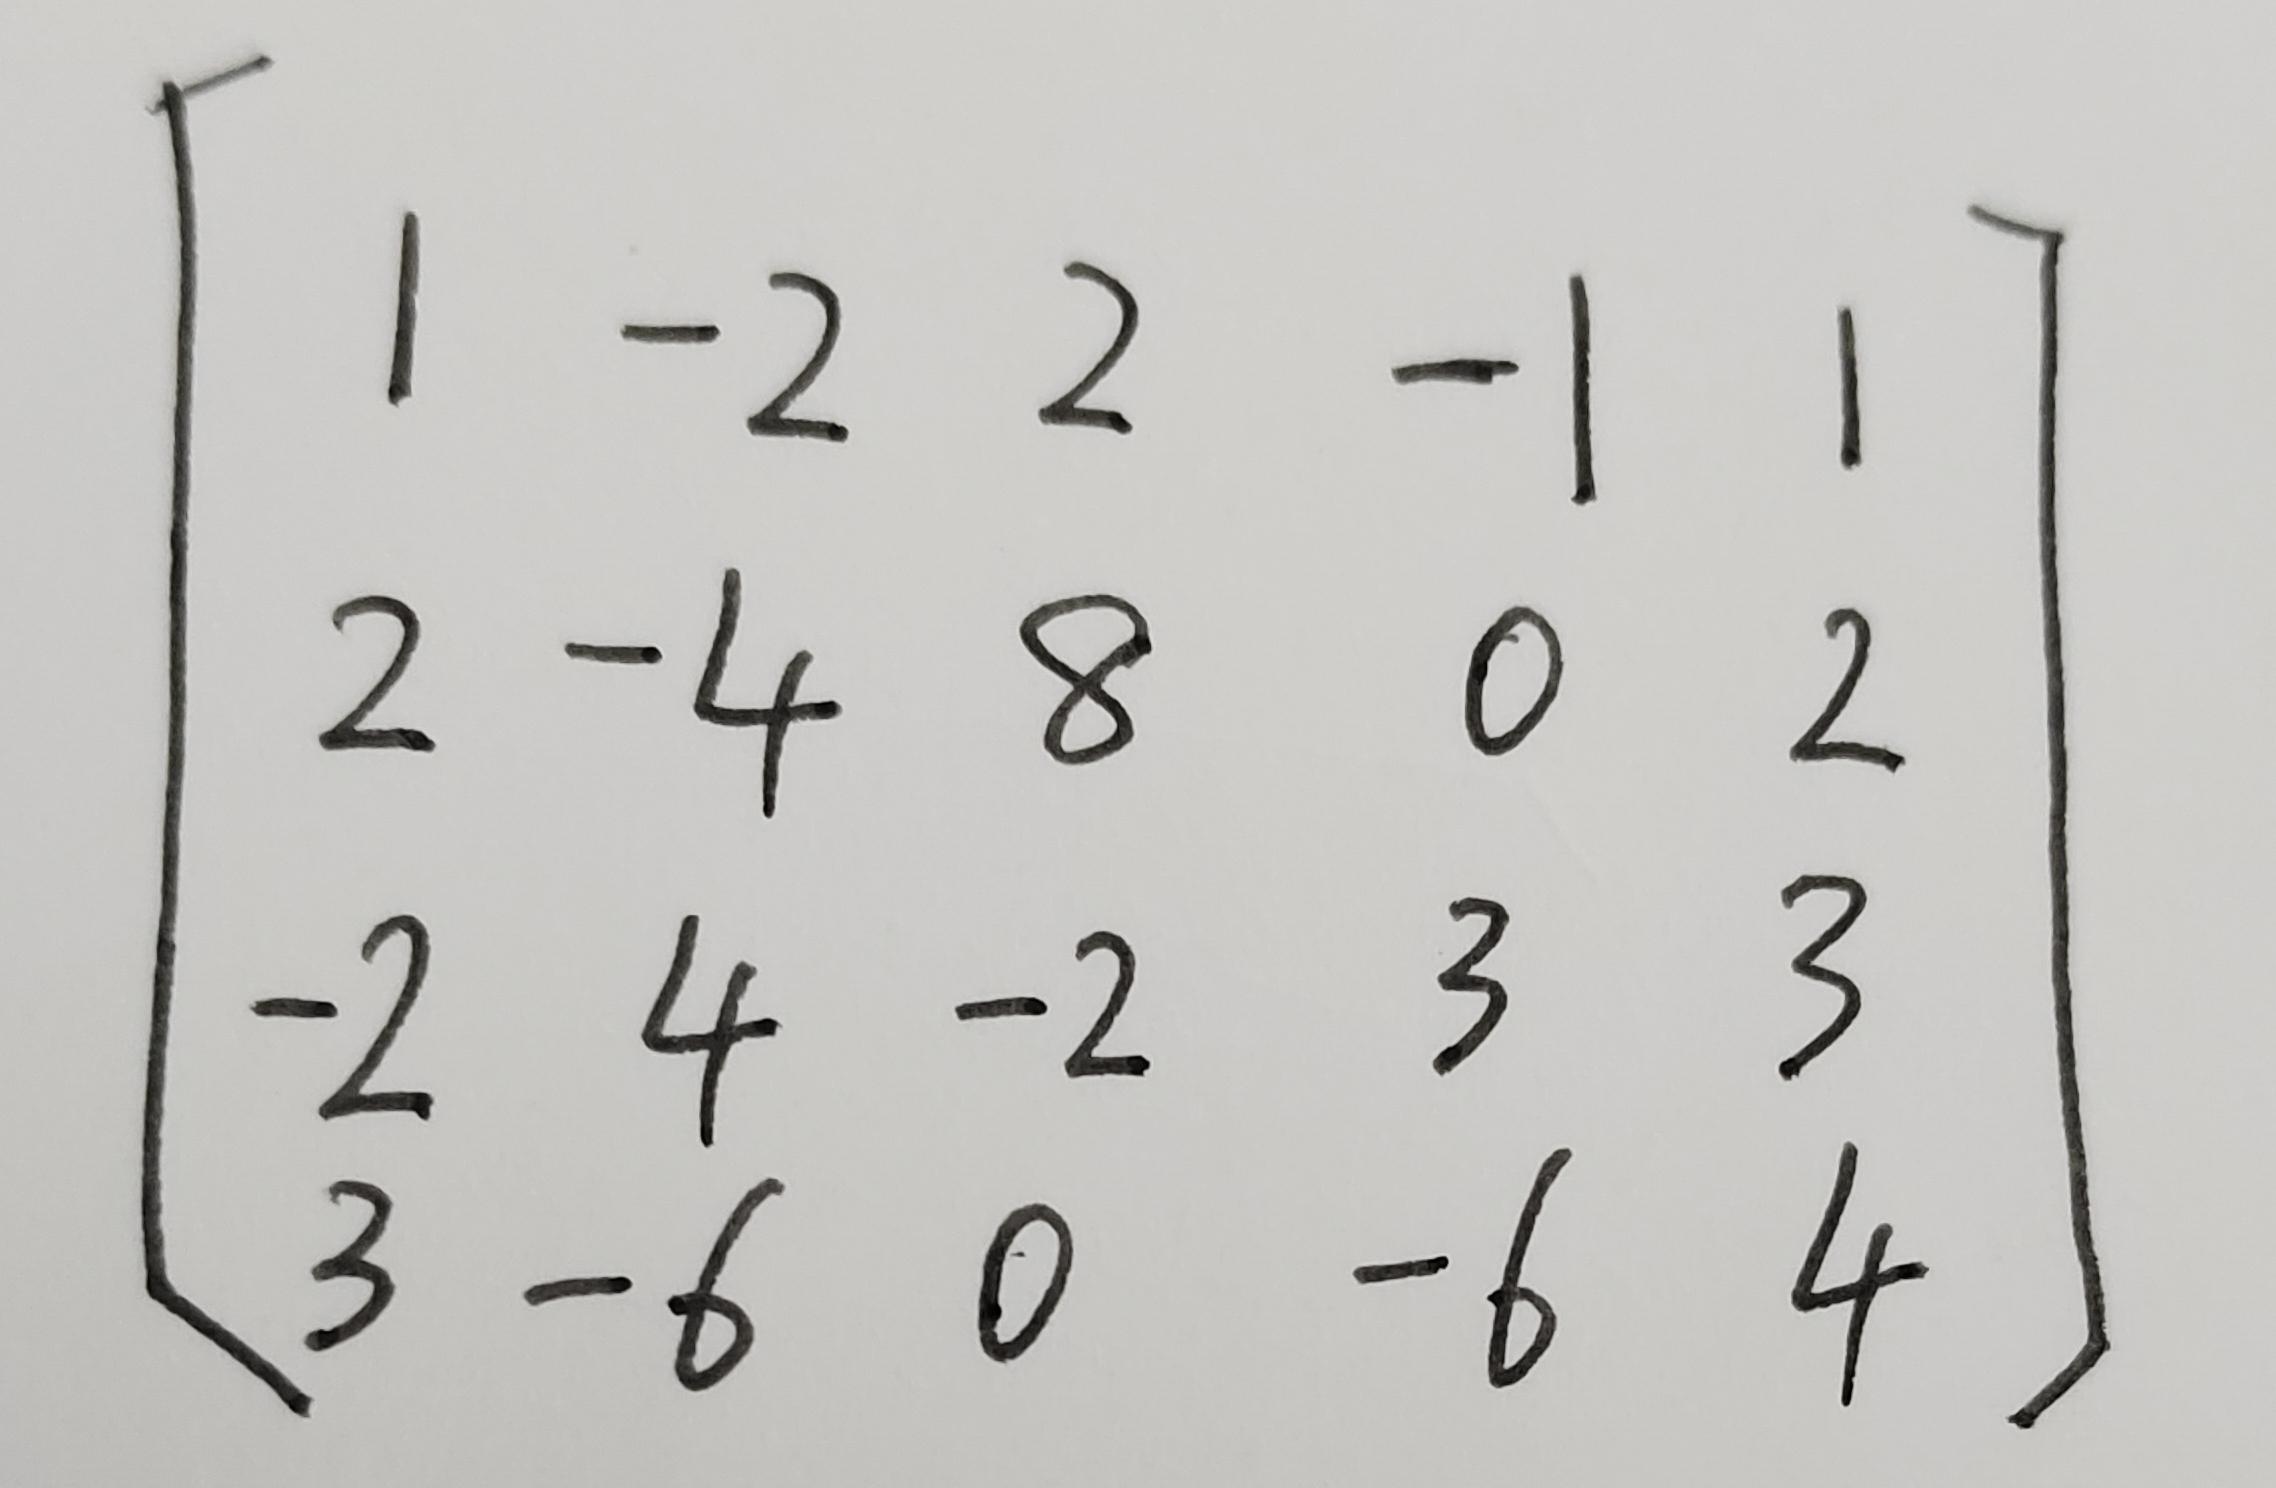 1 -2 2 -1 1
2 -4 8 0 2
-2 4 -2 3 3
3 -6 0 -6 4